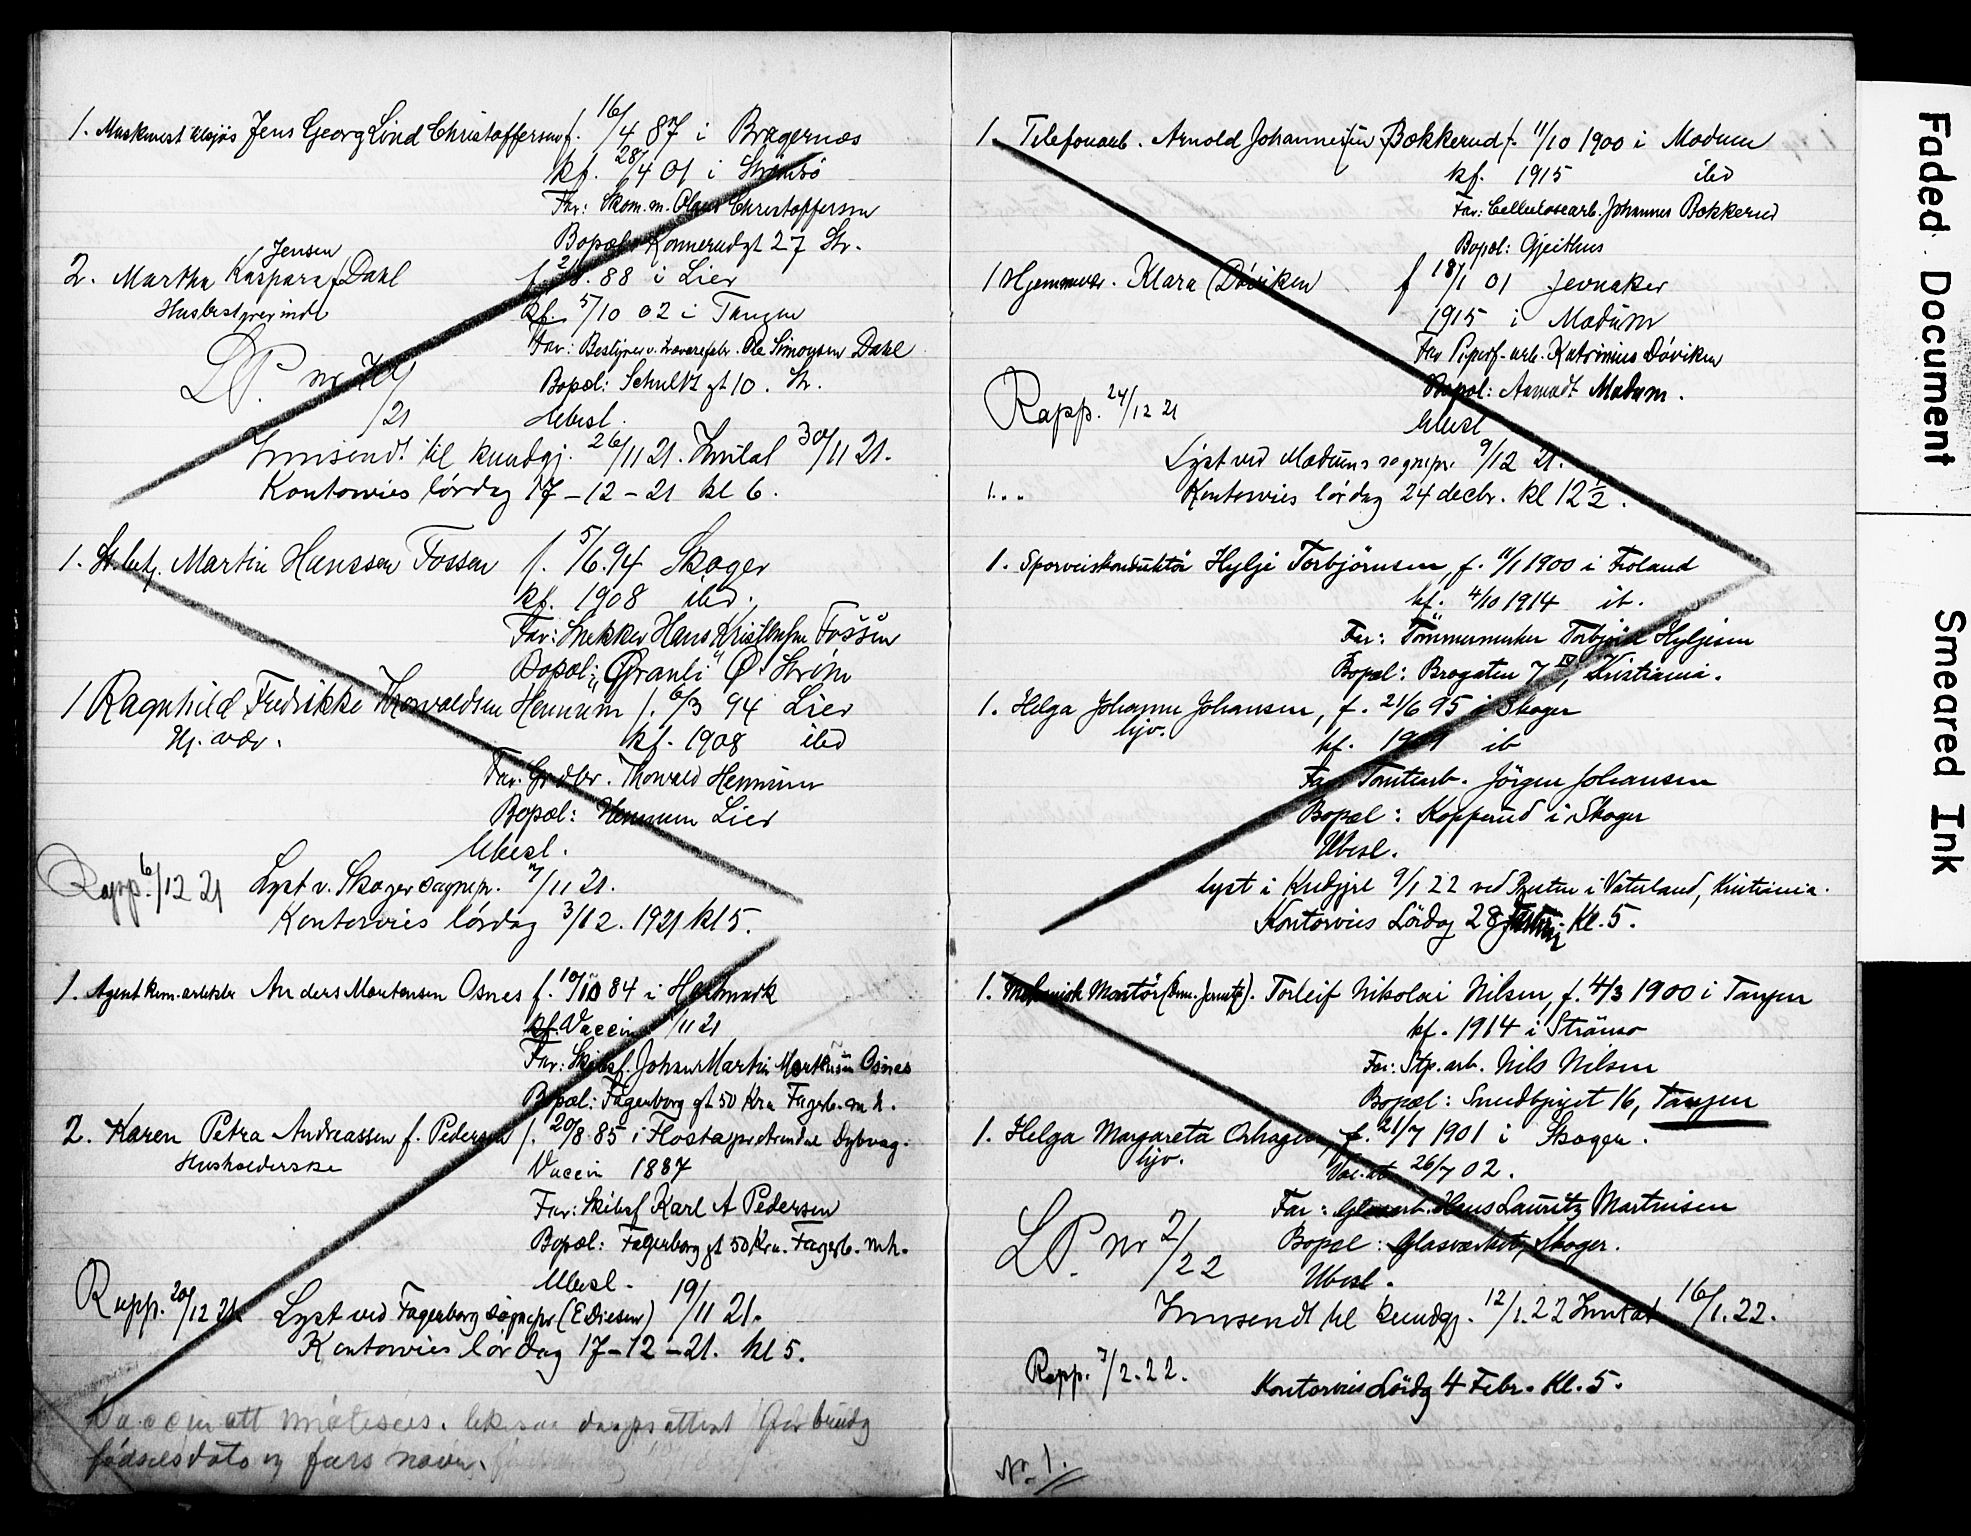 1. Maskinist tilsjøs Jens Georg Lind Christoffersen f. 16/4 87 i Bragernæs
kf. 28/4 01 i Strömsö
Far: Skom.m. Olaus Christoffersen
Bopæl: Konnerudgt 27 Str.
Jensen
2. Martha Kaspara f. Dahl f. 2/8. 88 i Lier
Husbestyrerinde kf. 5/10 02 i Tangen
Far: Bestyrer v. trævarefabr. Ole Simonsen Dahl
LP. nr /21 Bopæl: Schultz gt 10. Str.
Ubesl.
Innsendt til kundgj. 26/11 21. Inntat 30/11 21.
Kontorvies lørdag 17-12-21 kl 6.
1. Martin Hanssen Fossen f. 5/6.94 Skoger
kf. 1908 ibd.
Far: Snekker Hans Kristensen Fossen
Bopæl: "Granli" Ø. Ström
1 Ragnhild Fredrikke Thorvaldsen Hennum f. 6/3 94 Lier
Hj. vær. kf. 1908 ibd
Far: Grdbr. Thorvald Hennum
Bopæl: Hennum Lier
Ubesl.
Rapp. 6/12 21 Lyst v. Skoger sognepr. /11 21.
Kontorvies lørdag 3/12. 1921 kl 5.
1. Agent kem. arbeider Anders Martensen Osnes f. 10/10 84 i Hedmark
kf. Vaccin /11 21
Far: Skibsf. Johan Martin Mortensen Osnes
Bopæl: Fagerborg gt 50 Kra Fagerb. m.h.
2. Karen Petra Andreassen f. Pedersen f. 20/8.85 i Flosta pr Arendal Dybvag.
Husholderske Vaccin 1887
Far: Skibsf Karl A Pedersen
Bopæl: Fagerborg gt 50 Kra. Fagerb. m.h.
Ubesl.
Rapp. 20/12 21. Lyst ved Fagerborg sognepr (E. Diesen) 19/11 21.
Kontorvies lørdag 17-12-21. kl 5.
Vaccin att døpsattest for brudg
fødselsdato og fars navn.
1. Telefonarb. Arnold Johannessen Bokkerud f. 11/10 1900 i Modum
kf. 1915 ibd
Far: Cellulosearb. Johannes Bokkerud
Bopæl: Gjeithus
1 Hjemmevær. Klara Døviken f 18/1 01 Jevnaker
1915 i Modum
Far Papirf-arb. Katrinius Døviken
Bopæl: Aamodt Modum.
Rapp. 24/12 21 Ubesl
Lyst ved Modums sognepr. 9/12 21.
1. „ „ Kontorvies lørdag 24 decbr. kl 12½.
1. Sporveiskonduktör Hylje Torbjörnsen, f. 11/1 1900 i Froland
kf. 4/10 1914 ib.
Far: Tömmermerker Torbjörn Hyljesen
Bopæl: Brogaten 7 IV, Kristiania.
1. Helga Johanne Johansen, f. 21/6 95 i Skoger
hjv. kf. 1909 ib
Far Tomtearb. Jörgen Johansen
Bopæl: Kopperud i Skoger
Ubesl.
Lyst i Kndgjrl 9/1 22 ved Prsten i Vaterland, Kristiania.
Kontorvies Lördag 28 Kl. 5.
1. Mekanisk Montör Torleif Nikolai Nilsen, f. 4/3 1900 i Tangen
kf. 1914 i Strömsö
Far: Stp. arb. Nils Nilsen
Bopæl: Smedbjerget 16, Tangen
1. Helga Margareta Orhagen, f. 21/7 1901 i Skoger.
hjv. Vac. att. 26/7 02.
Far: Glasarb. Hans Lauritz Martinsen
LP. nr 2/22 Bopæl: Glasværket, Skoger.
Ubesl.
Innsendt til kundgj. 12/1. 22 Inntat 16/1. 22.
Rapp. 7/2. 22. Kontorvies Lördg 4 Febr. Kl. 5.
No 1.
Faded Document
Smeared Ink